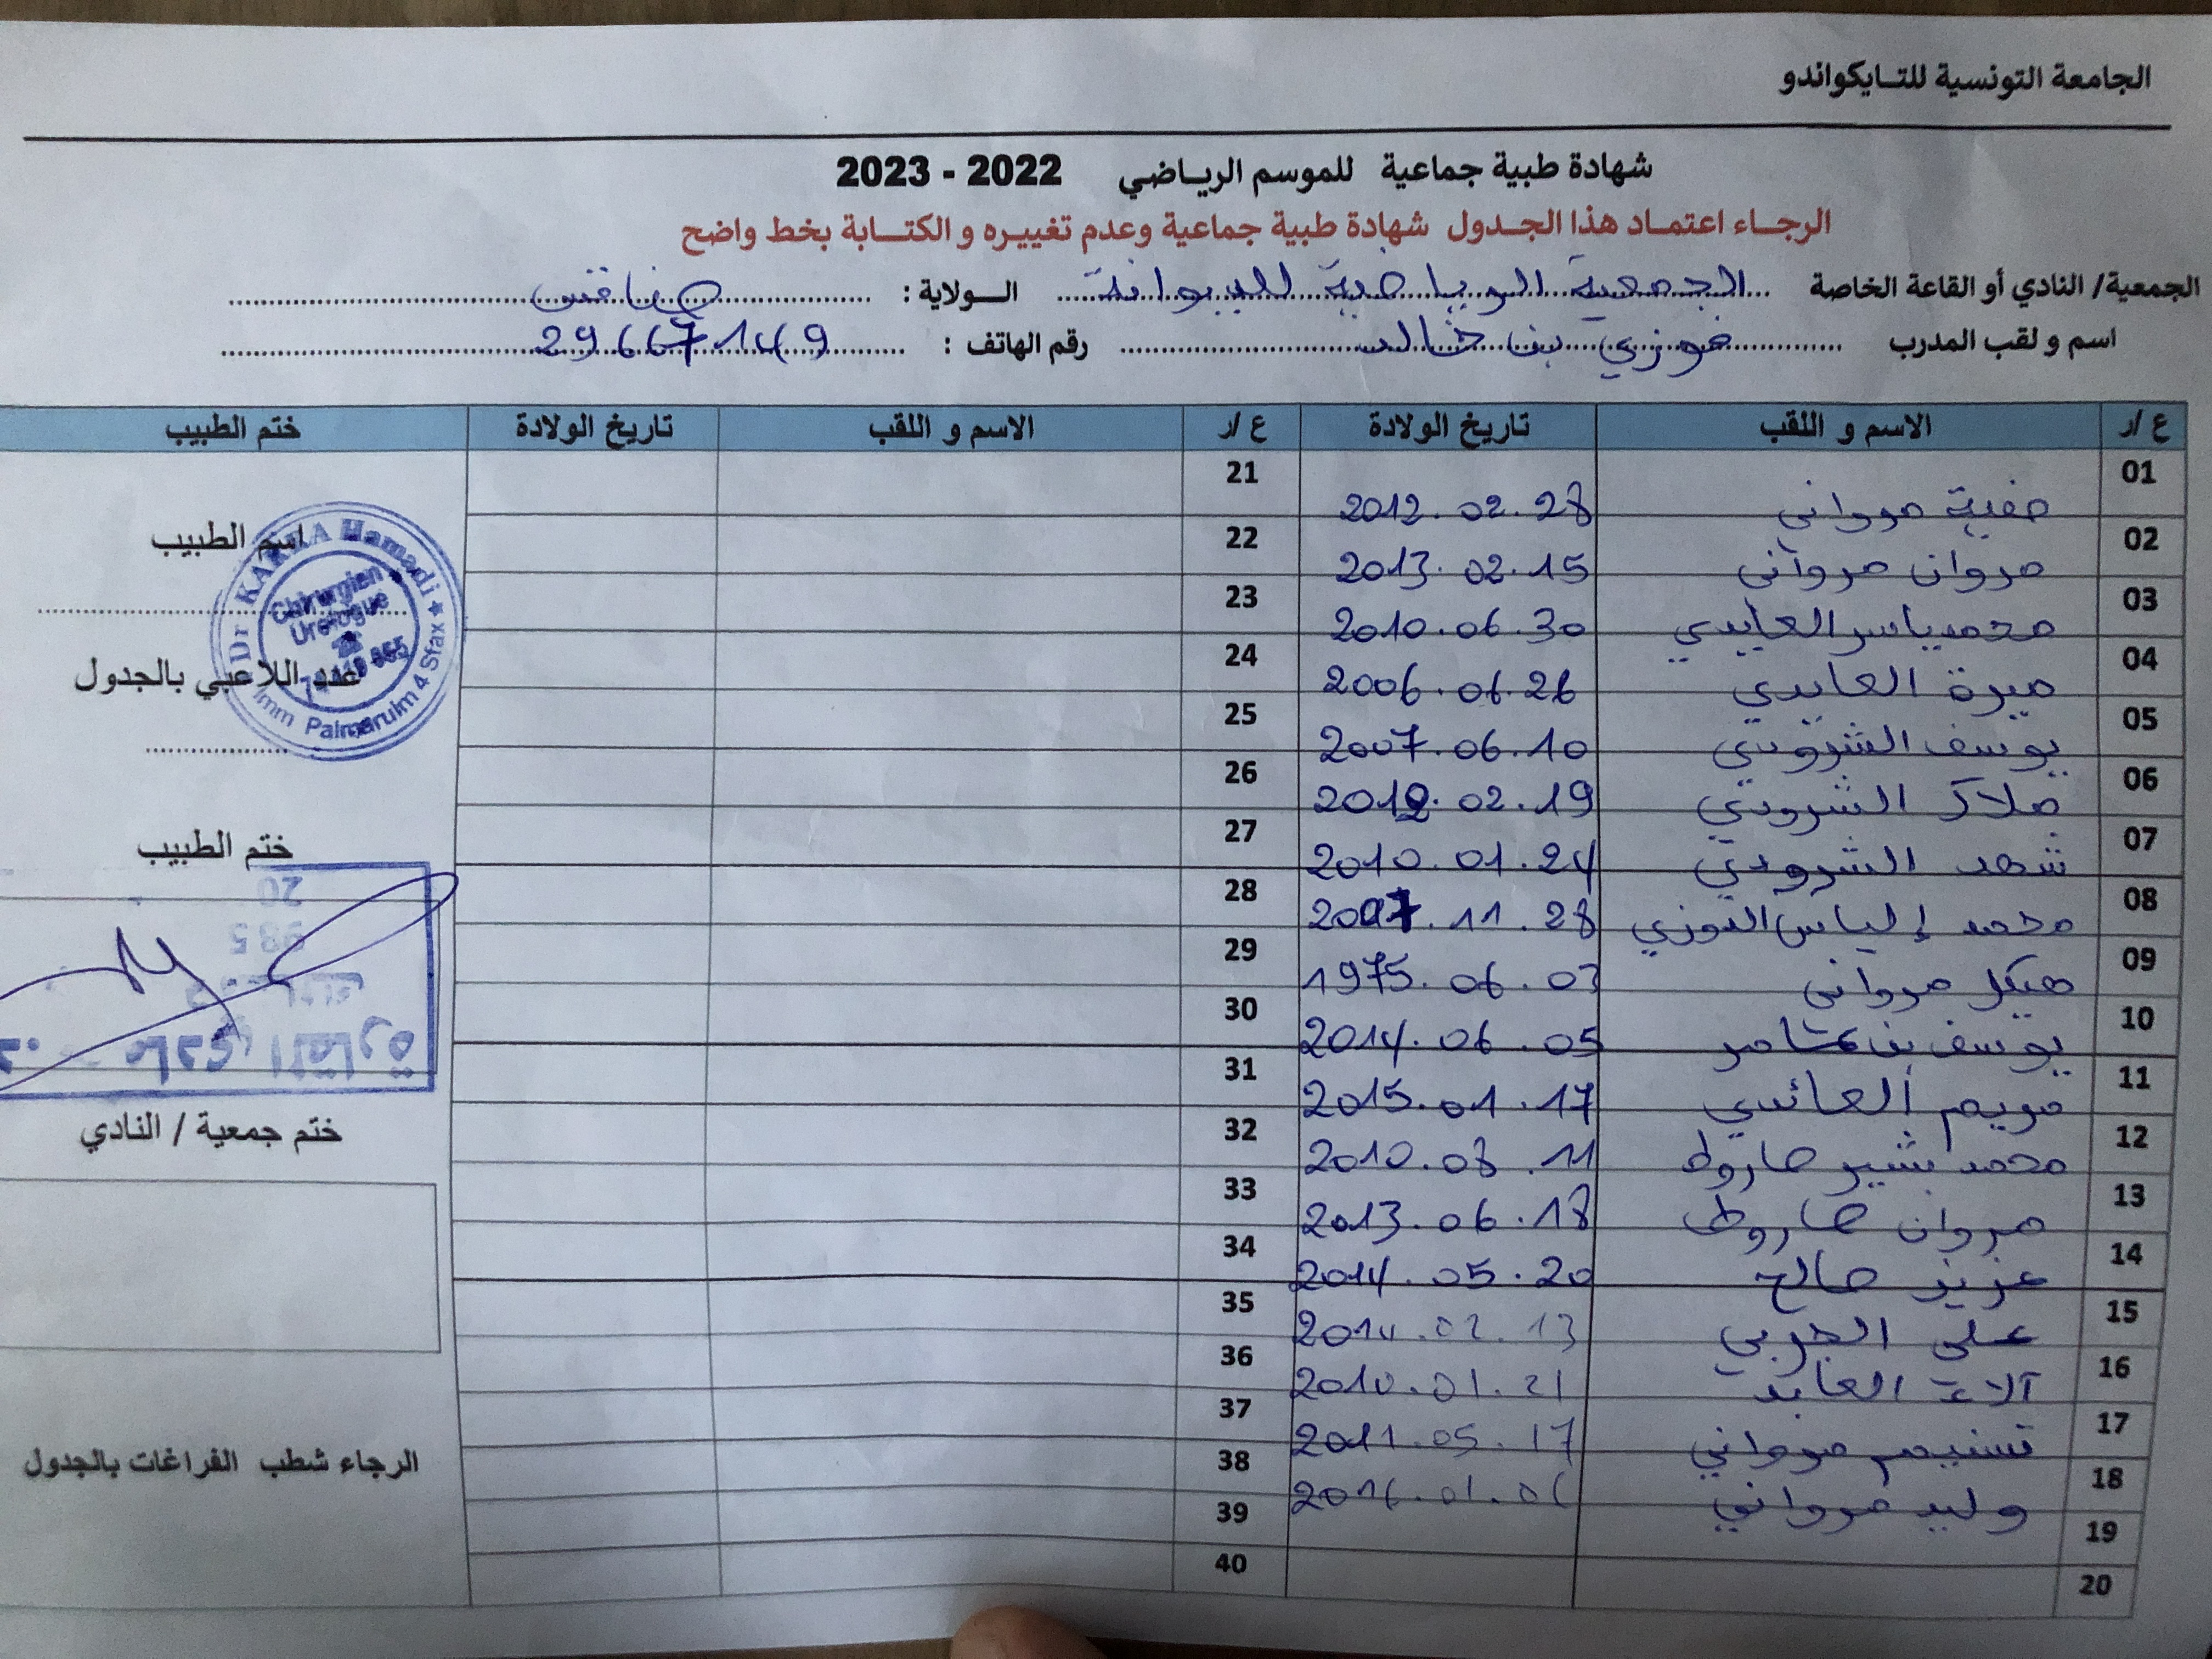 الجامعة التونسية للتايكواندو
شهادة طبية جماعية للموسم الرياضي 2022 - 2023
الرجاء اعتماد هذا الجدول شهادة طبية جماعية وعدم تغييره و الكتابة بخط واضح
الجمعية/ النادي أو القاعة الخاصة الجمعية الرياضية للبيوانة الولاية : صفاقس
اسم و لقب المدرب فوزي بن خالد رقم الهاتف : 29667149
ع /ر الاسم و اللقب تاريخ الولادة ع /ر الاسم و اللقب تاريخ الولادة ختم الطبيب
01 صفية مرواني 2012.02.28 21
02 مروان مرواني 2013.02.15 22
03 محمد ياسر العايدي 2010.06.30 23
04 ميرة العايدي 2006.06.26 24
05 يوسف الشرودي 2007.06.10 25
06 ملاك الشرودي 2012.02.19 26
07 شهد الشرودي 2010.01.24 27
08 محمد إلياس اللوزي 2007.11.28 28
09 هيكل مرواني 1975.06.03 29
10 يوسف بن عامر 2014.06.05 30
11 مريم العائدي 2015.01.17 31
12 محمد بشير طاروط 2010.08.11 32
13 مروان طاروط 2013.06.18 33
14 عزيز صالح 2014.05.20 34
15 علي الحربي 2014.02.13 35
16 آلاء العابد 2010.01.21 36
17 تسنيم مرواني 2011.05.17 37
18 وليد مرواني 01.06 38
19 39
20 40
اسم الطبيب
Dr Hamadi
Chirurgien
Urologue
Imm Palmarukm 4 Sfax
عدد اللاعبي بالجدول
ختم الطبيب
ختم جمعية / النادي
الرجاء شطب الفراغات بالجدول